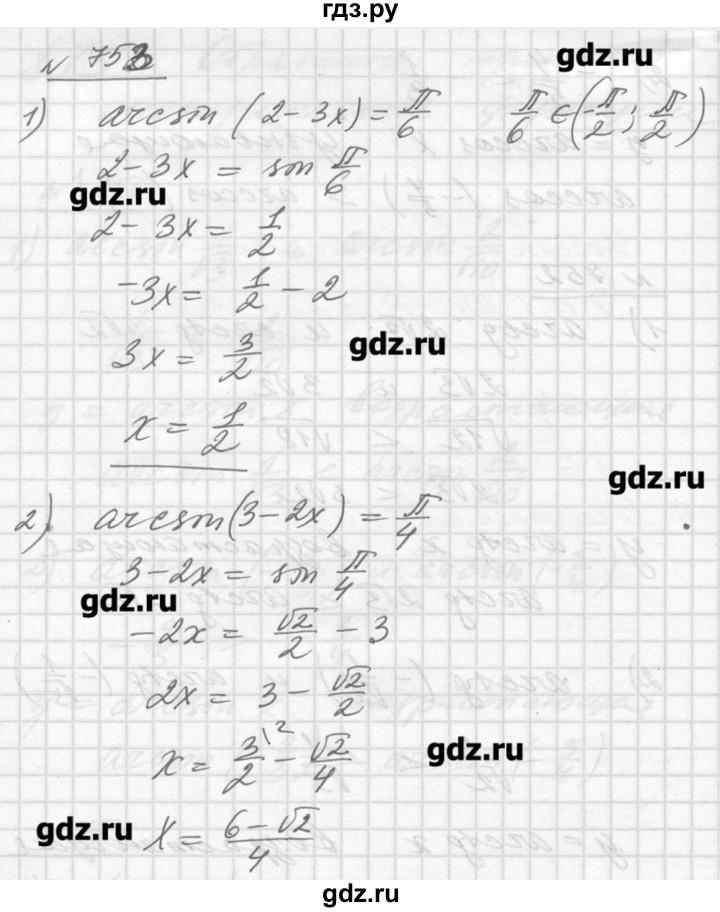 гдз.ру
№ 753
gdz.ru
1) arcsin (2-3x) = π/6   π/6 ∈ (-π/2; π/2)
2-3x = sin π/6
gdz.ru
2-3x = 1/2
-3x = 1/2 - 2
3x = 3/2
gdz.ru
x = 1/2
gdz.ru
2) arcsin(3-2x) = π/4
3-2x = sin π/4
gdz.ru
-2x = √2/2 - 3
2x = 3 - √2/2
x = 3\2/2 - √2/4
gdz.ru
gdz.ru
x = (6-√2)/4
gdz.ru